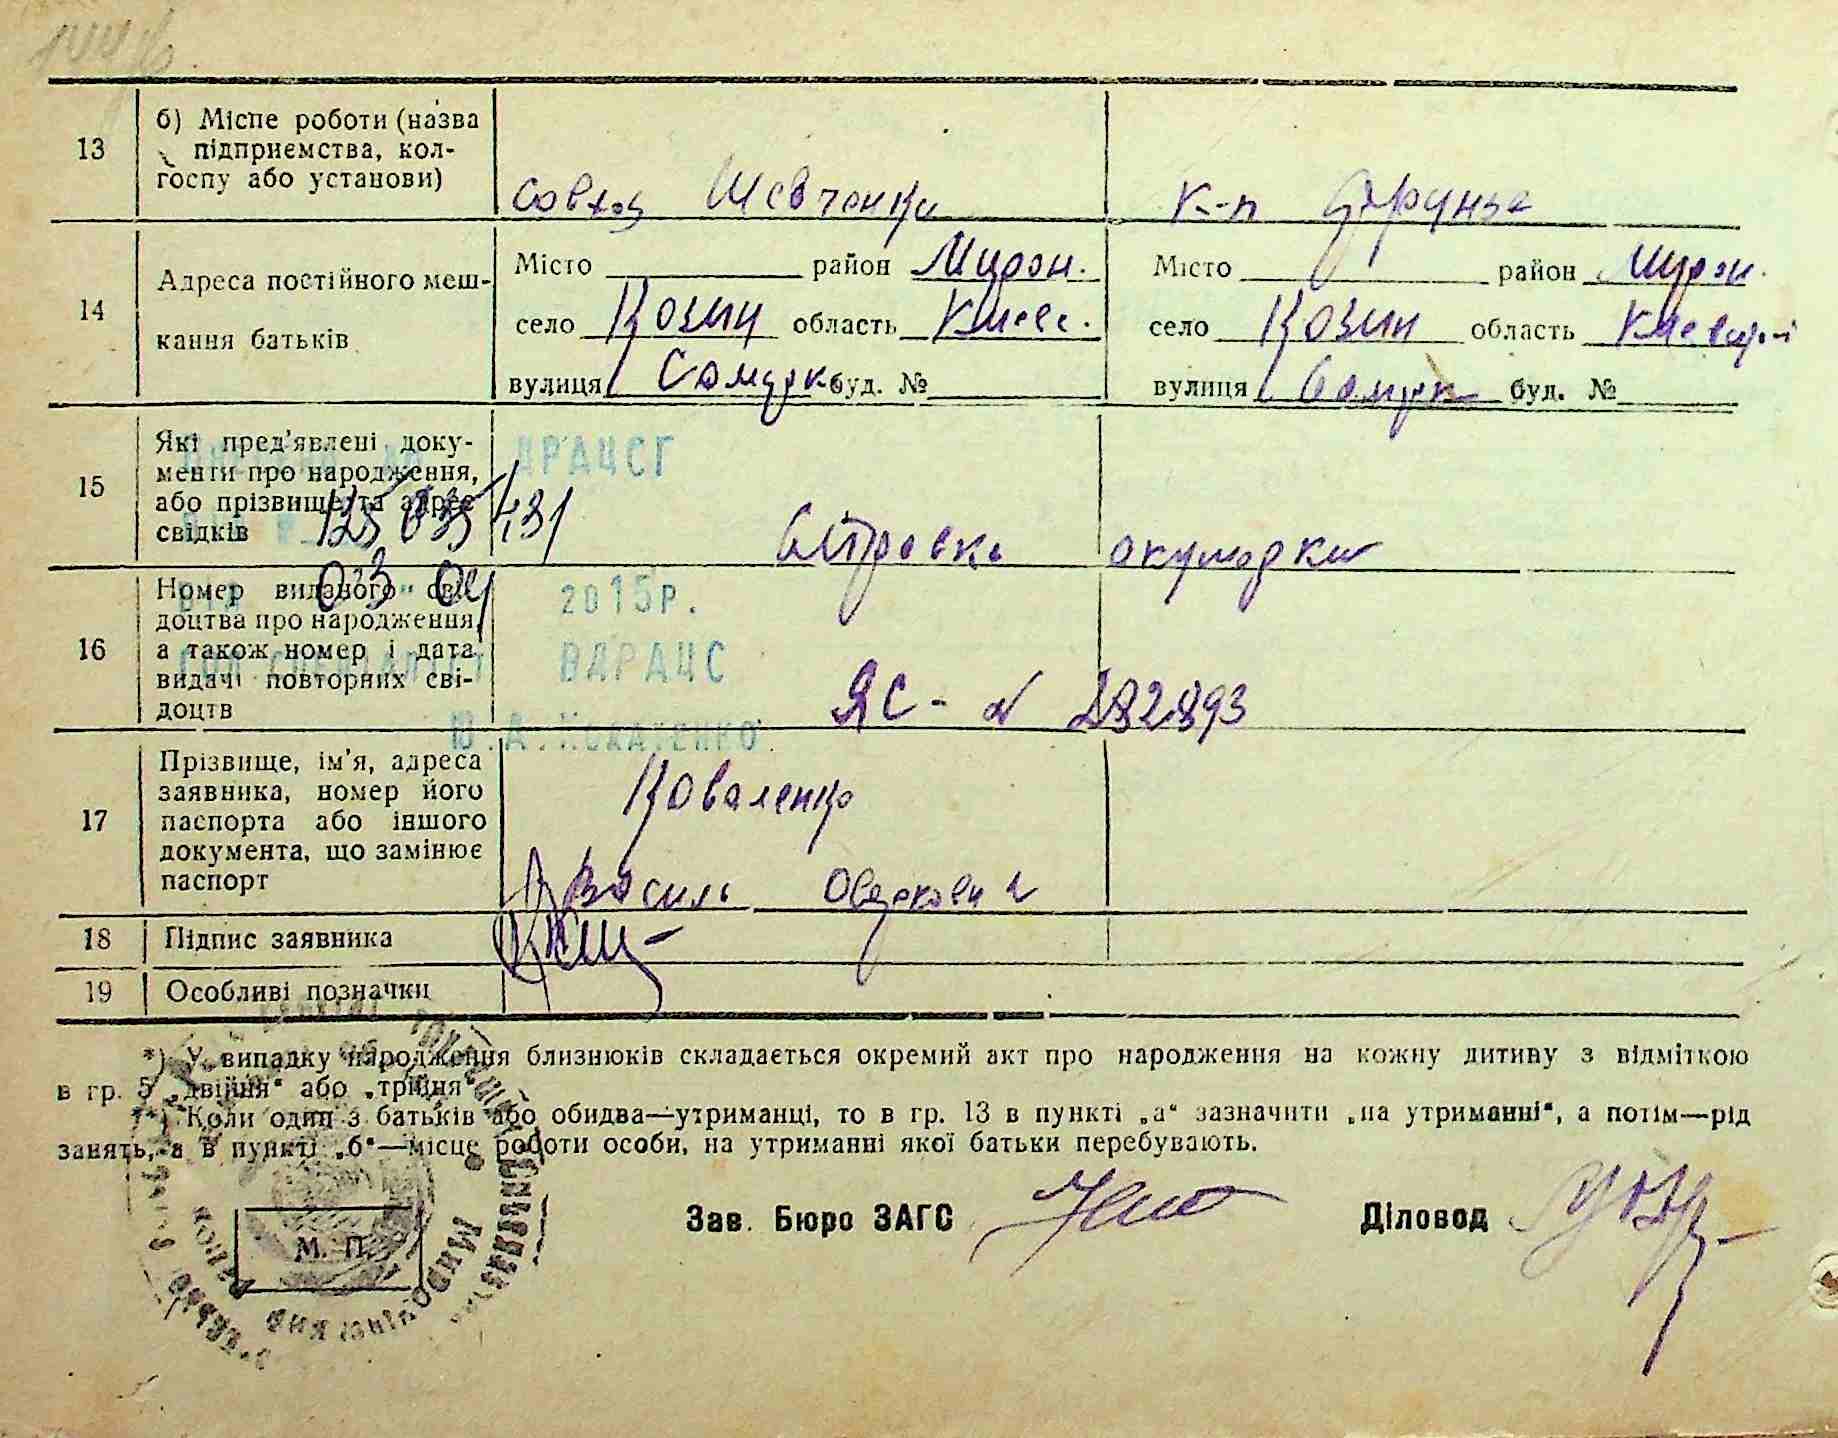 13
б) Місце роботи (назва
підприємства, кол-
госпу або установи)
Совхоз Шевченки
к-п Фрунзе
14
Адреса постійного меш-
кання батьків
Місто район Мирон.
село Козин область Києвс.
вулиця буд. №
Місто район Мирон.
село Козин область
вулиця буд. №
15
Які пред'явлені доку-
менти про народження,
або прізвище та адрес
свідків
ДРАЦСГ
125 035/431
Справка акушерки
16
Номер виданого сві-
доцтва про народження,
а також номер і дата
видачі повторних сві-
доцтв
03 04 2015р.
ВДРАЦС
ЯС - N 282893
17
Прізвище, ім'я, адреса
заявника, номер його
паспорта або іншого
документа, що замінює
паспорт
Коваленко
Василь
18
Підпис заявника
19
Особливі позначки
*) У випадку народження близнюків складається окремий акт про народження на кожну дитину з відміткою
в гр. 5 „двійня“ або „трійня“
**) Коли один з батьків або обидва—утриманці, то в гр. 13 в пункті „а“ зазначити „на утриманні“, а потім—рід
занять, а в пункті „б“—місце роботи особи, на утриманні якої батьки перебувають.
М. П.
Зав. Бюро ЗАГС
Діловод